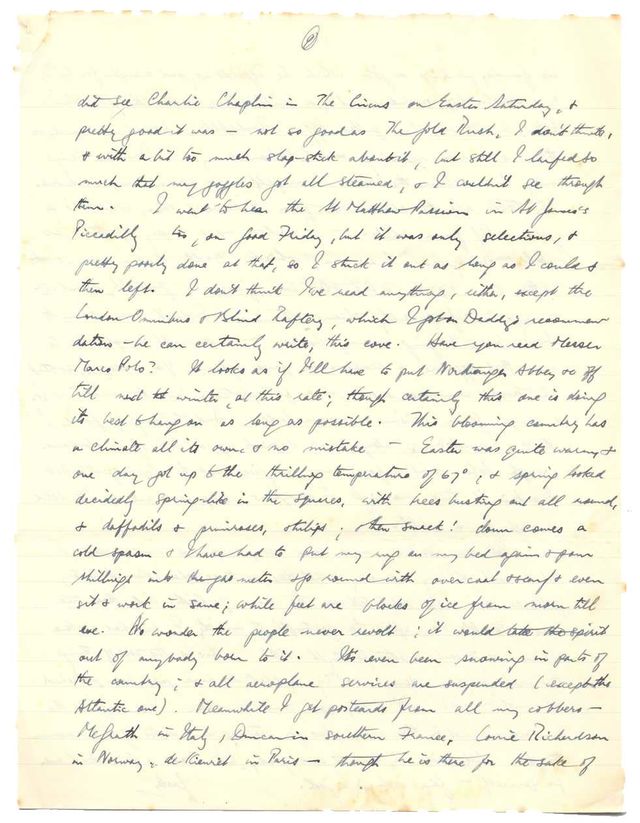 did see Charlie Chaplin in The Circus on Easter Saturday, &
pretty good it was – not so good as The Gold Rush, I don't think,
& with a bit too much slap-stick about it, but still I larfed so
much that my goggles got all steamed, & I couldn't see through
them. I went to hear the St Matthew Passion in St James's
Piccadilly too, on Good Friday, but it was only selections, &
pretty poorly done at that, so I stuck it out as long as I could &
then left. I don't think I've read anything, either, except the
London Omnibus & Blind Raftery, which I got on Daddy's recommen
dation – he can certainly write, this cove. Have you read Messer
Marco Polo? It looks as if I'll have to put Northanger Abbey &c off
till next winter, at this rate; though certainly this one is doing
its best to hang on as long as possible. This blooming country has
a climate all its own & no mistake – Easter was quite warm &
one day got up to the thrilling temperature of 67°, & spring looked
decidedly spring-like in the squares, with trees busting out all round,
& daffodils & primroses, & tulips; then smack! down comes a
cold spasm & I have had to put my rug on my bed again & pour
shillings into the gas meter & go round with overcoat & scarf & even
sit & work in same; while feet are blocks of ice from morn till
eve. No wonder the people never revolt; it would take the spirit
out of anybody born to it. It's even been snowing in parts of
the country; & all aeroplane services are suspended (except the
Atlantic one). Meanwhile I get postcards from all my cobbers –
McGrath in Italy, Duncan in southern France, Lorrie Richardson
in Norway, de Kiewiet in Paris – though he is there for the sake of